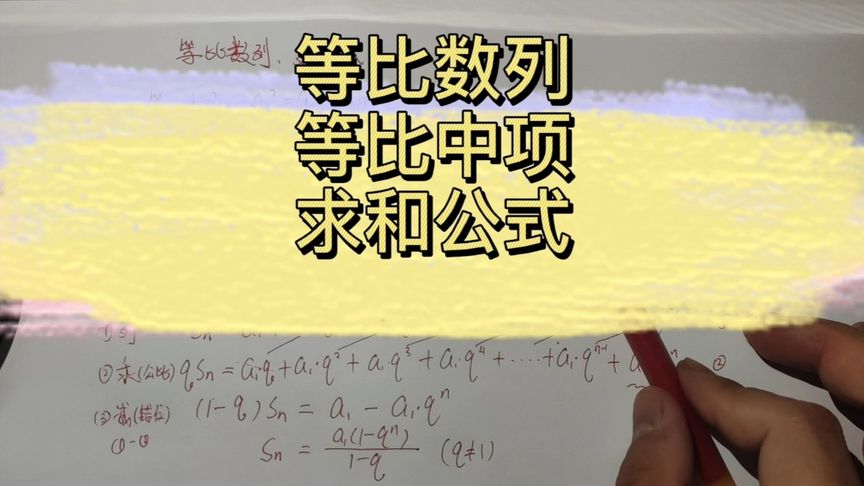 等比数列、
等比数列
等比中项
求和公式
①列 Sn =
②乘(公比) qSn = a₁·q + a₁·q² + a₁·q³ + a₁·q⁴ + ...... + a₁·qⁿ⁻¹ + a ⁿ ②
③减(错位) (1-q)Sn = a₁ - a₁·qⁿ
①-②
Sn = a₁(1-qⁿ)/1-q (q≠1)